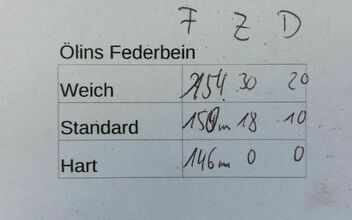 F Z D
Ölins Federbein
Weich 154 30 20
Standard 150mm 18 10
Hart 146mm 0 0